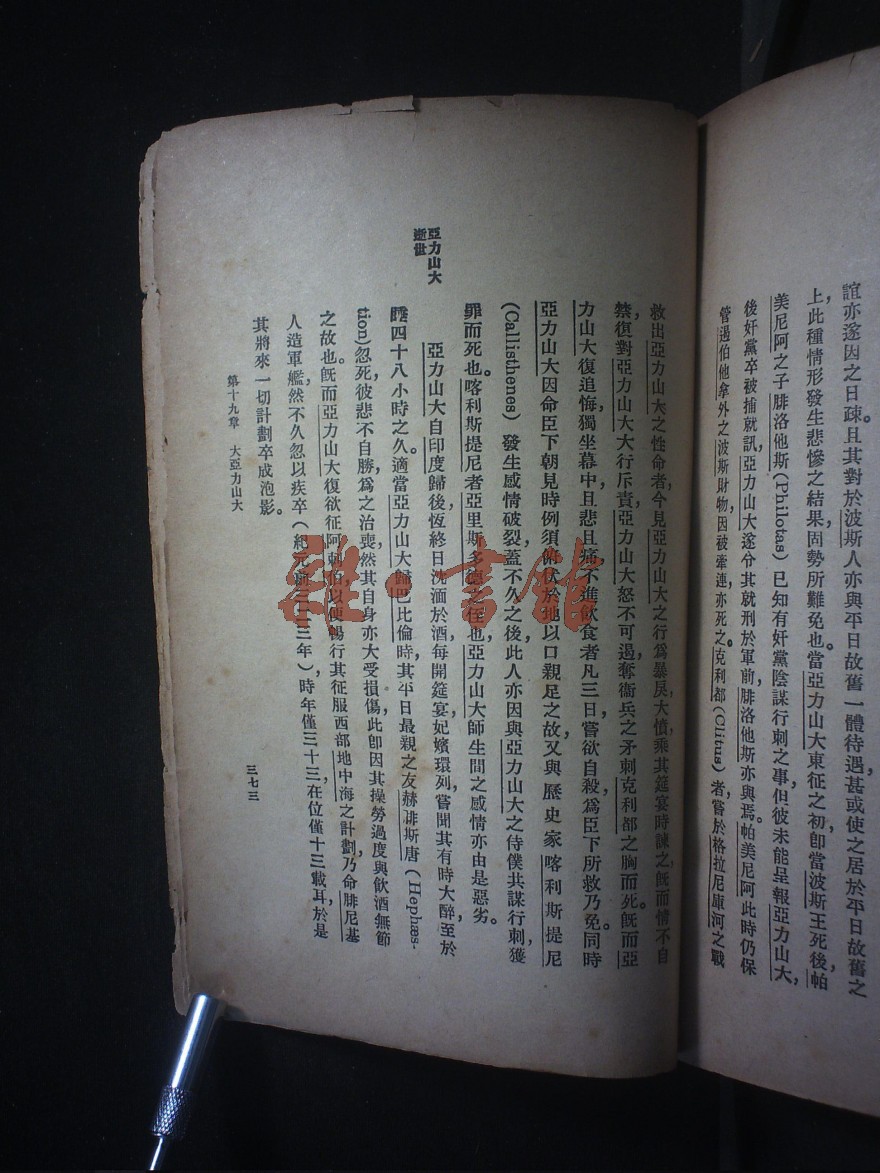 誼亦遂因之日疎。且其對於波斯人亦與平日故舊一體待遇甚或使之居於平日故舊之
上,此種情形發生悲慘之結果固勢所難免也。當亞力山大東征之初即當波斯王死後,帕
美尼阿之子腓洛他斯(Philotas)已知有奸黨陰謀行刺之事但彼未能呈報亞力山大,
後奸黨卒被捕就訊,亞力山大遂分其就刑於軍前,腓洛他斯亦與焉。帕美尼阿此時仍保
管過伯他拿外之波斯財物,因被牽連亦死之。克利都(Clitus)者嘗於格拉尼庫河之戰
救出亞力山大之性命者,今見亞力山大之行爲暴戾大憤,乘其筵宴時諫之,旣而情不自
禁,復對亞力山大大行斥責,亞力山大怒不可遏,奪衞兵之矛刺克利都之胸而死。旣而亞
力山大復追悔,獨坐幕中且悲且痛不進飲食者凡三日,嘗欲自殺,爲臣下所救乃免。同時
亞力山大因命臣下朝見時例須俯伏於地以口親足之故,又與歷史家喀利斯提尼
(Callisthenes)發生感情破裂,蓋不久之後此人亦因與亞力山大之侍僕共謀行刺,獲
罪而死也。喀利斯提尼者亞里斯多德之侄也,亞力山大師生間之感情亦由是惡劣。
亞力山大逝世
亞力山大自印度歸後恆終日沈湎於酒,每開筵宴妃嬪環列,嘗聞其有時大醉,至於
睡四十八小時之久。適當亞力山大歸巴比倫時,其平日最親之友赫誹斯唐(Hephæs-
tion)忽死,彼悲不自勝,爲之治喪,然其自身亦大受損傷,此卽因其操勞過度與飲酒無節
之故也。旣而亞力山大復欲征阿剌伯以便暢行其征服西部地中海之計劃,乃命腓尼基
人造軍艦,然不久忽以疾卒(紀元前三二三年),時年僅三十三,在位僅十三載耳,於是
其將來一切計劃卒成泡影。
第十九章 大亞力山大
三七三
雜·書館